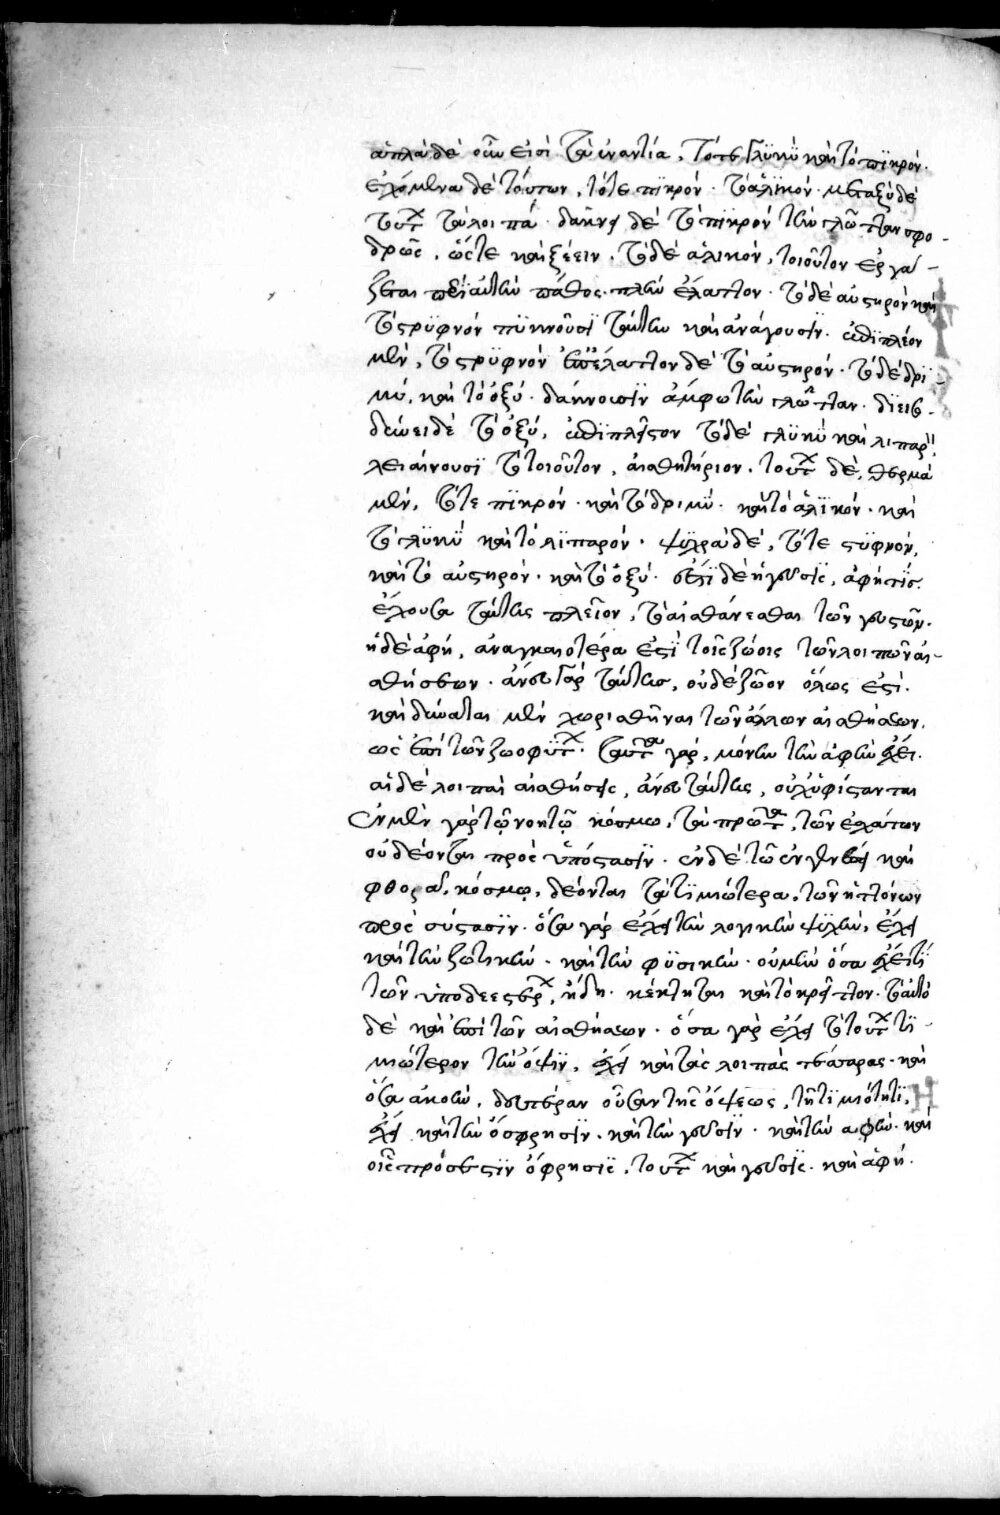 ἁπλᾶ δὲ οὖν εἰσὶ τὰ ἐναντία, τό τε γλυκὺ καὶ τὸ πικρόν.
ἐχόμενα δὲ τούτων, τό τε πικρόν· τὸ ἁλϊκόν· μεταξὺ δὲ
τούτων τὰ λοιπά· δάκνει δὲ τὸ πικρὸν τὴν γλῶτταν σφο-
δρῶς, ὥστε καὶ ξέειν. τὸ δὲ ἁλικόν, τοιοῦτον ἐργά-
ζεται περὶ αὐτὴν πάθος. πλὴν ἔλαττον. τὸ δὲ αὐστηρὸν καὶ
τὸ στρυφνὸν πυκνοῦσι ταύτην καὶ ἀνάγουσιν. ἐπὶ πλέον
μὲν, τὸ στρυφνὸν ἐπ' ἔλαττον δὲ τὸ αὐστηρόν. τὸ δὲ δρι-
μύ, καὶ τὸ ὀξύ· δάκνουσιν ἄμφω τὴν γλῶτταν. διεισ-
δύνει δὲ τὸ ὀξύ, ἐπὶ πλεῖστον τὸ δὲ γλυκὺ καὶ λιπαρὸν,
λεαίνουσι τὸ τοιοῦτον, αἰσθητήριον. τούτων δὲ, θερμὰ
μὲν, τό τε πικρόν· καὶ τὸ δριμύ· καὶ τὸ ἁλικόν· καὶ
τὸ γλυκὺ καὶ τὸ λιπαρόν· ψυχρὰ δέ, τό τε στυφνόν,
καὶ τὸ αὐστηρόν· καὶ τὸ ὀξύ. ἐστὶ δὲ ἡ γεῦσις, ἁφή τις.
ἔχουσα ταύτης πλεῖον, τὸ αἰσθάνεσθαι τῶν γευστῶν.
ἡ δὲ ἁφή, ἀναγκαιοτέρα ἐστὶ τοῖς ζώοις τῶν λοιπῶν αἰ-
σθήσεων. ἄνευ γὰρ ταύτης, οὐδὲ ζῶον ὅλως ἐστί.
καὶ δύναται μὲν χωρισθῆναι τῶν ἄλλων αἰσθήσεων,
ὡς ἐπὶ τῶν ζωοφύτων. ταῦτα γὰρ, μόνην τὴν ἁφὴν ἔχει.
αἱ δὲ λοιπαὶ αἰσθήσεις, ἄνευ ταύτης, οὐχ ὑφίστανται
Ἐν μὲν γὰρ τῷ νοητῷ κόσμω, τὰ πρῶτα, τῶν ἐσχάτων
οὐ δέονται πρὸς ὑπόστασιν. ἐν δὲ τῶ ἐν γενέσει καὶ
φθορᾷ, κόσμῳ, δέονται τὰ τιμιώτερα, τῶν ἡττόνων
πρὸς σύστασιν. ὅσα γὰρ ἔχει τὴν λογικὴν ψυχὴν, ἔχει
καὶ τὴν ζωτικὴν· καὶ τὴν φυσικὴν· οὐ μὴν ὅσα ἔχει τι
τῶν ὑποδεεστέρων, ἤδη κέκτηται καὶ τὸ κρεῖττον. τὸ αὐτὸ
δὲ καὶ ἐπὶ τῶν αἰσθήσεων. ὅσα γὰρ ἔχει τὸ τούτων τι-
μιώτερον τὴν ὄψιν, ἔχει καὶ τὰς λοιπὰς τέσσαρας. καὶ
ὅσα ἀκοὴν, δευτέραν οὖσαν τῆς ὄψεως, τῇ τιμιότητι,
ἔχει καὶ τὴν ὄσφρησιν. καὶ τὴν γεῦσιν. καὶ τὴν ἁφὴν. καὶ
οἷς πρόσεστιν ὄσφρησις, τούτων καὶ γεῦσις. καὶ ἁφή.